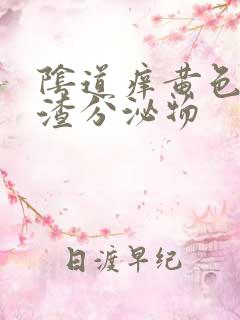 陰道痒黄色
渣分泌物
日渡早纪